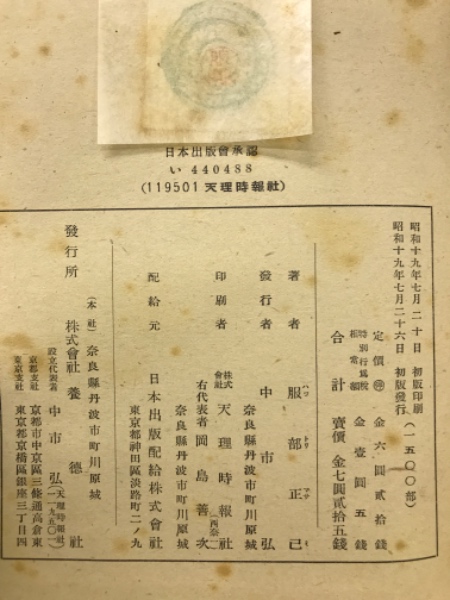 日本出版會承認
い 440488
(119501 天理時報社)
昭和十九年七月二十日 初版印刷
昭和十九年七月二十六日 初版發行 (一五〇〇部)
定價 停 金六圓貳拾錢
特別行爲税相當額 金壹圓五錢
合計 賣價 金七圓貳拾五錢
著者 服部正己
發行者 中市弘
奈良縣丹波市町川原城
印刷者 株式會社 天理時報社
右代表者 岡島善次 (西奈一)
奈良縣丹波市町川原城
配給元 日本出版配給株式會社
東京都神田區淡路町二ノ九
發行所 (本社) 奈良縣丹波市町川原城
株式會社 養德社
設立代表者 中市弘 (天理時報社 一一九五〇一)
京都支社 京都市中京區三條通高倉東
東京支社 東京都京橋區銀座三丁目四